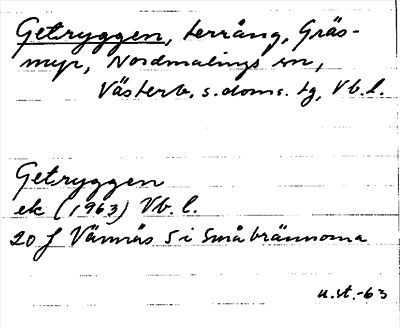 Getryggen, terräng, Gräs-
myr, Nordmalings sn,
Västerb. s. doms. tg, Vb. l.
Getryggen
ek (1963) Vb. l.
20 f Vännäs 5 i Småbrännorna
u.st.-63